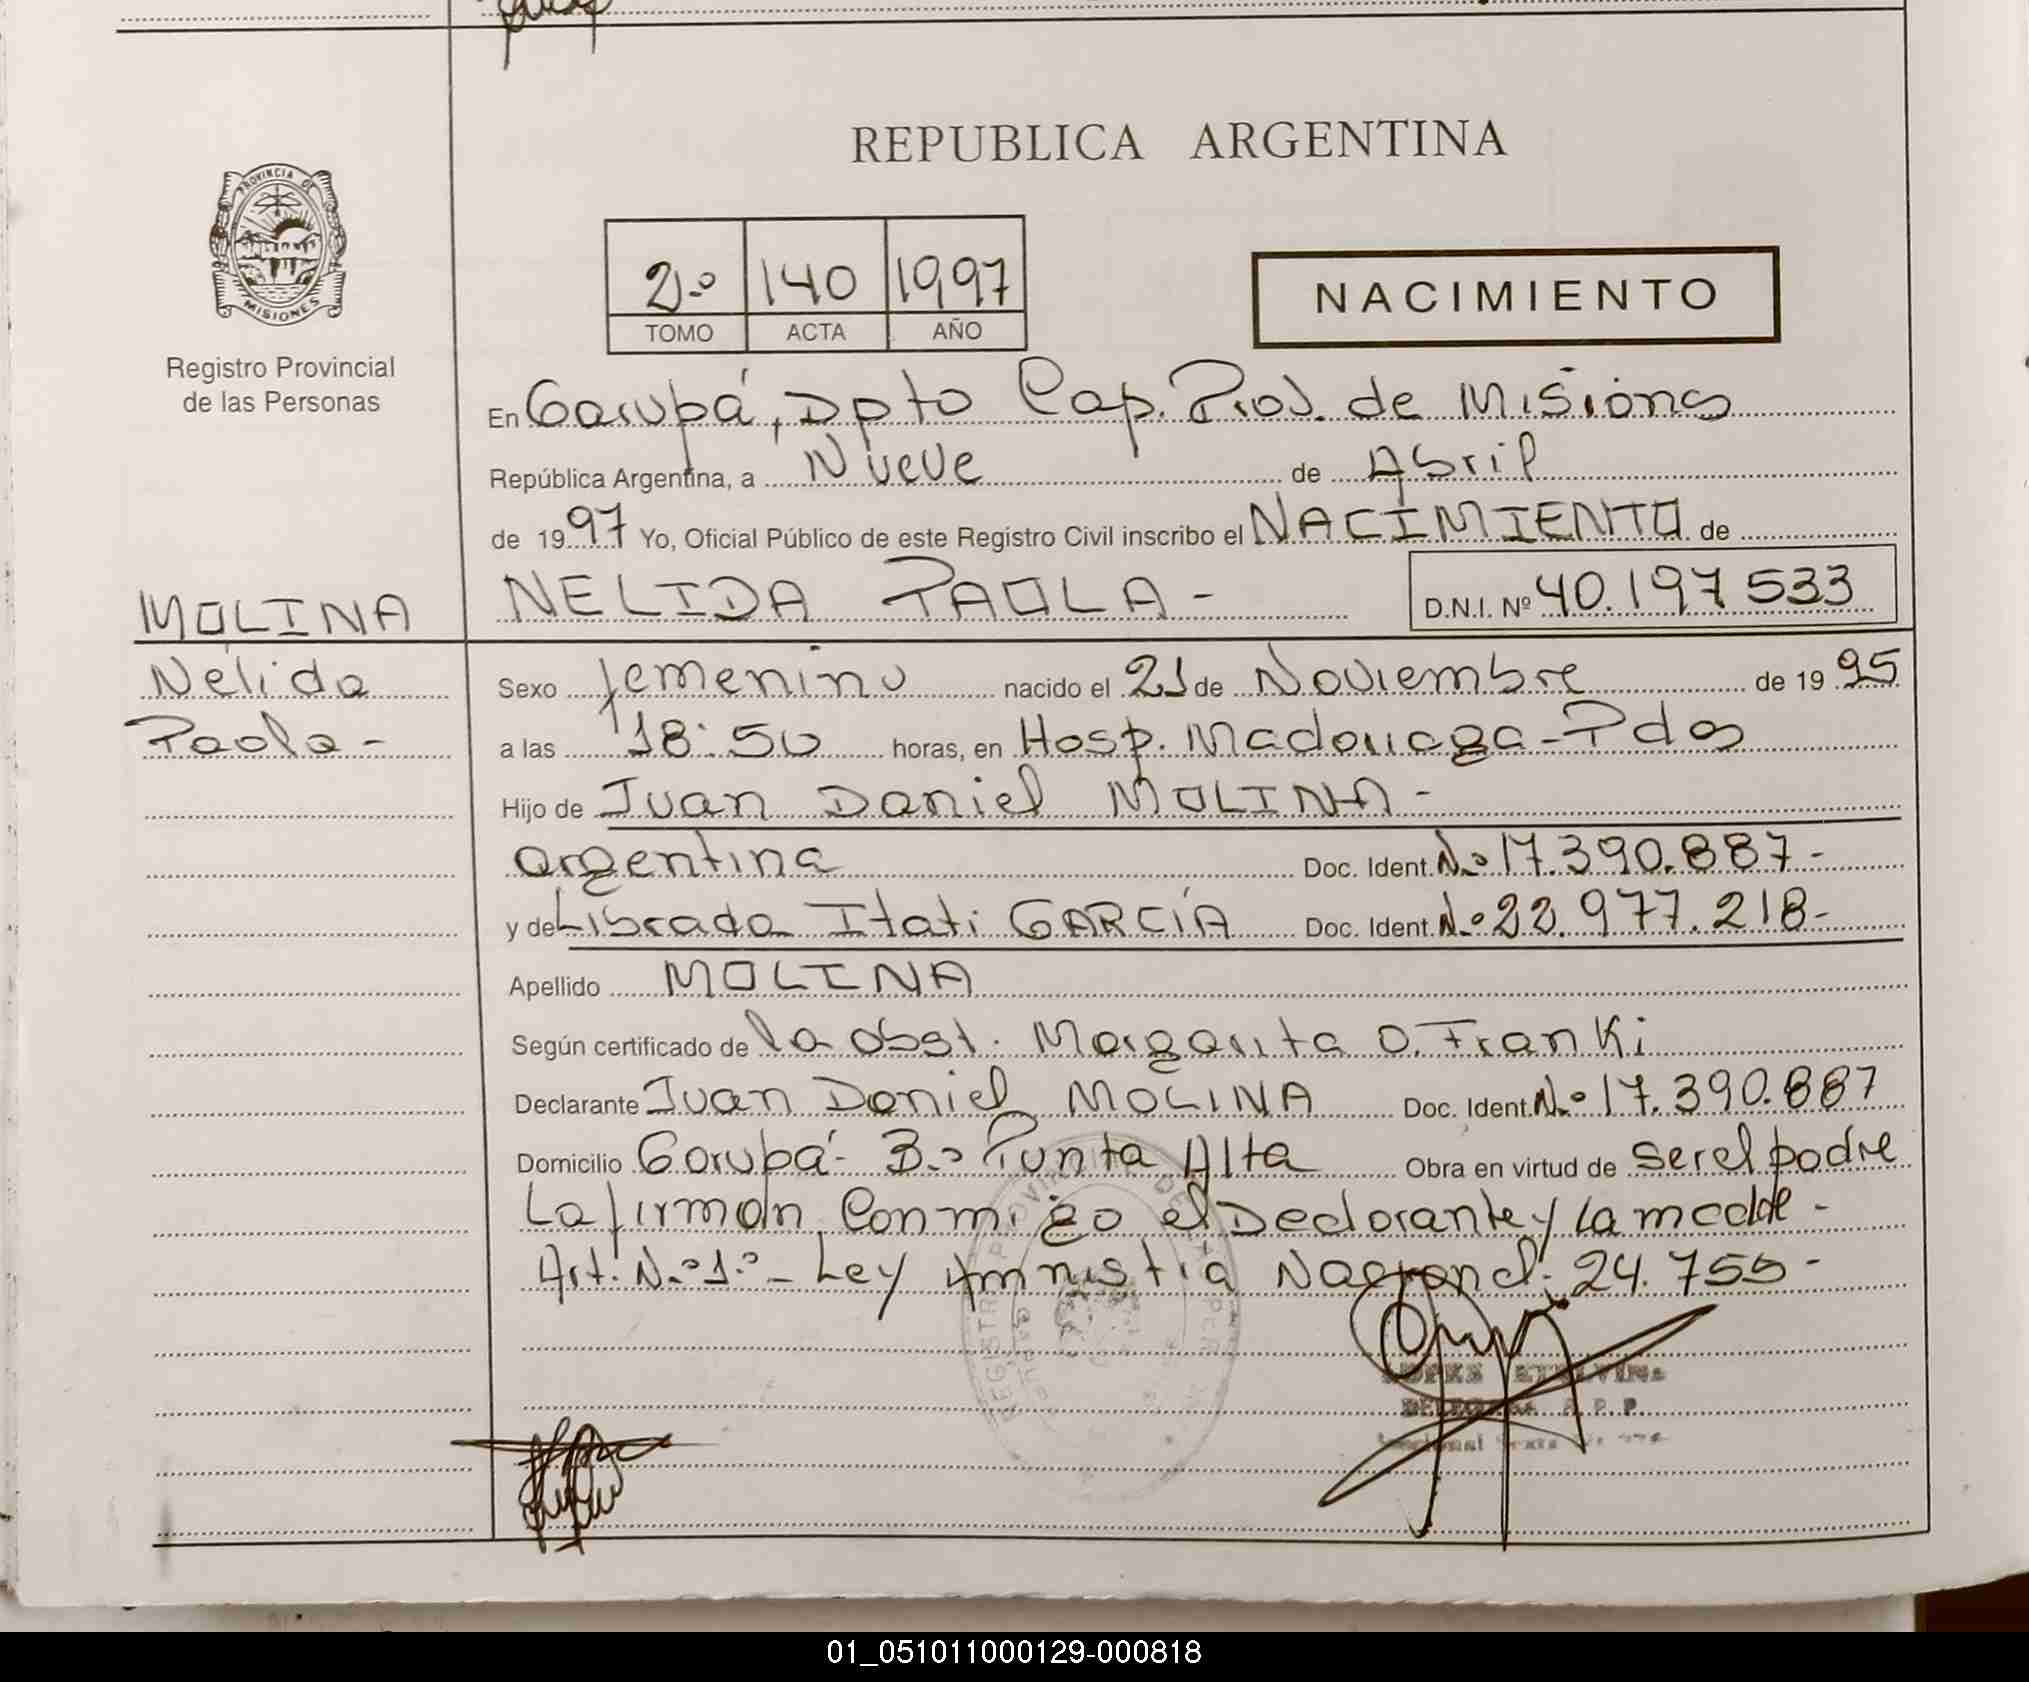 REPUBLICA ARGENTINA
PROVINCIA DE MISIONES
Registro Provincial
de las Personas
2º 140 1997
TOMO ACTA AÑO
NACIMIENTO
En Garupá, Dpto Cap. Prov. de Misiones
República Argentina, a Nueve de Abril
de 1997 Yo, Oficial Público de este Registro Civil inscribo el NACIMIENTO de
MOLINA NELIDA PAOLA - D.N.I. Nº 40.197533
Nélida Sexo femenino nacido el 21 de Noviembre de 1995
Paola - a las 18:50 horas, en Hosp. Madariaga - Pdas
Hijo de Juan Daniel MOLINA -
argentina Doc. Ident. Nº 17.390.887-
y de Librada Itati GARCÍA Doc. Ident. Nº 22.977.218-
Apellido MOLINA
Según certificado de la obst. Margarita O. Franki
Declarante Juan Daniel MOLINA Doc. Ident. Nº 17.390.887
Domicilio Garupá - Bº Punta Alta Obra en virtud de ser el padre
La firman conmigo el Declarante y la madre -
Art. Nº 1º - Ley Amnistía Nacional - 24.755 -
LOPEZ ETELVINA
DELEGADA R. P. P.
01_051011000129-000818